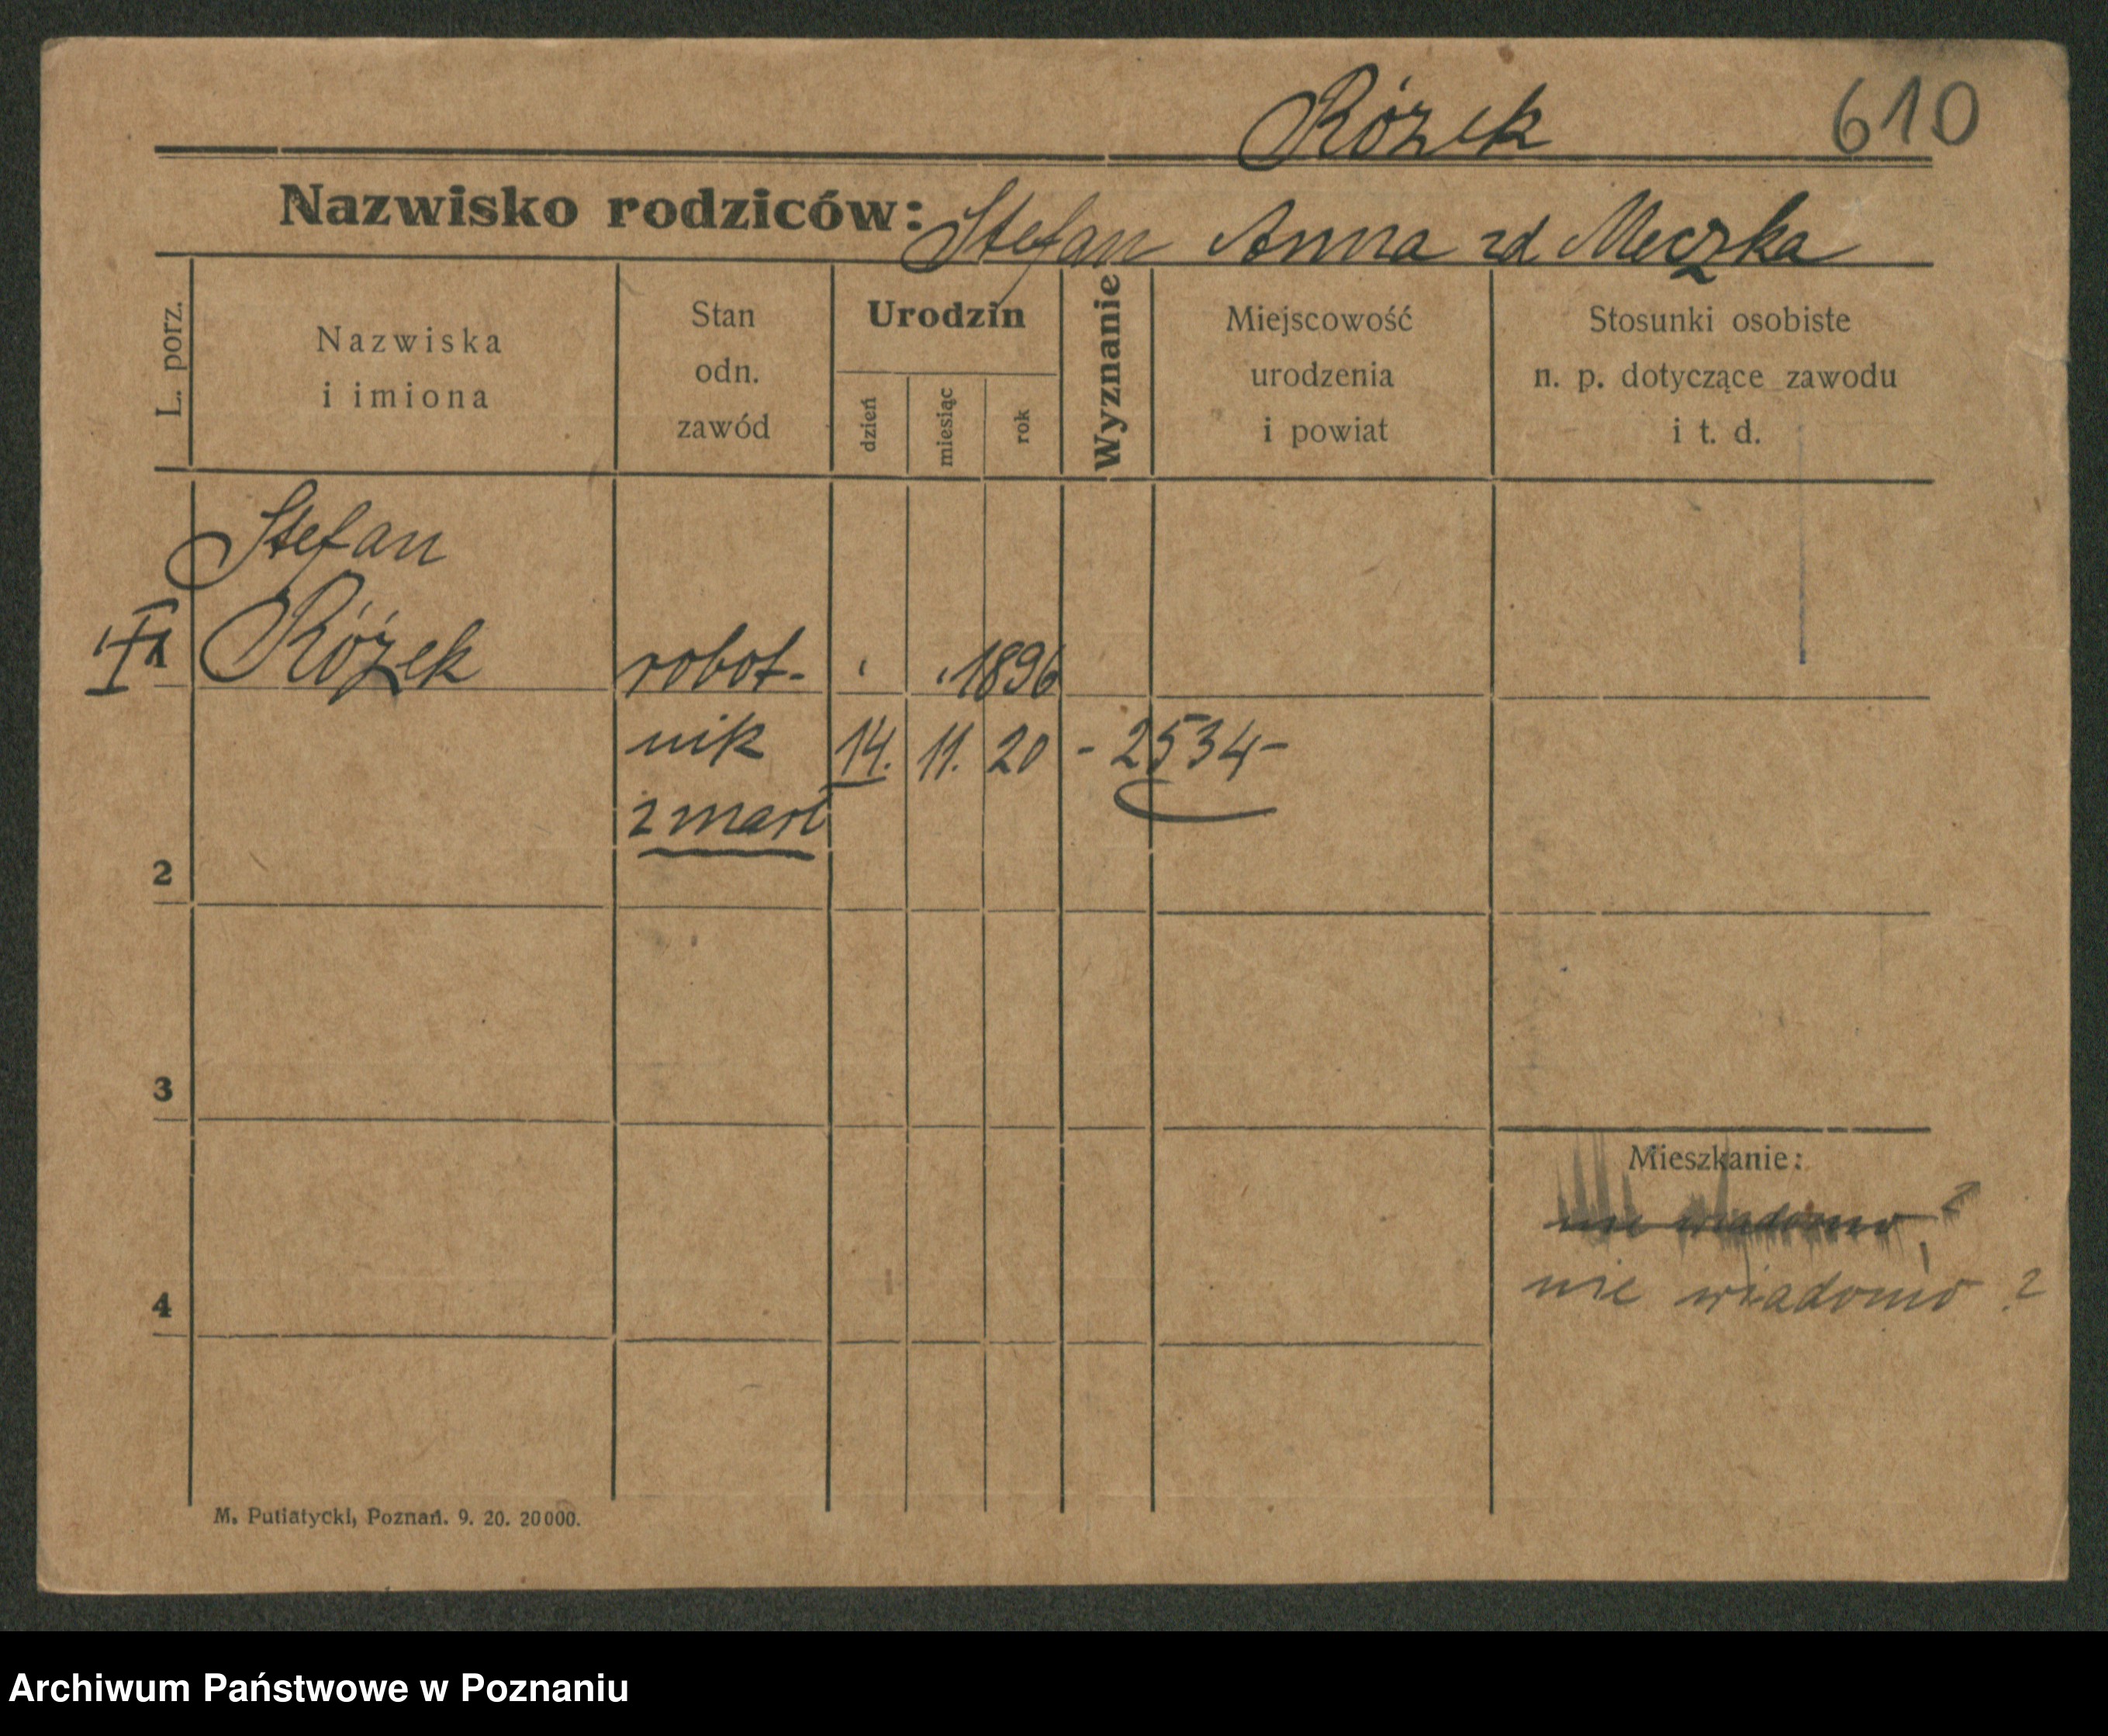 Rózek 610
Nazwisko rodziców: Stefan Anna zd Meczka
L. porz.
Nazwiska
i imiona
Stan
odn.
zawód
Urodzin
dzień
miesiąc
rok
Wyznanie
Miejscowość
urodzenia
i powiat
Stosunki osobiste
n. p. dotyczące zawodu
i t. d.
Stefan
1 Rózek robot- . . 1896
nik 14. 11. 20 - 2534-
zmarł
2
3
Mieszkanie:
nie wiadomo ?
nie wiadomo ?
4
M. Putiatycki, Poznań. 9. 20. 20000.
Archiwum Państwowe w Poznaniu